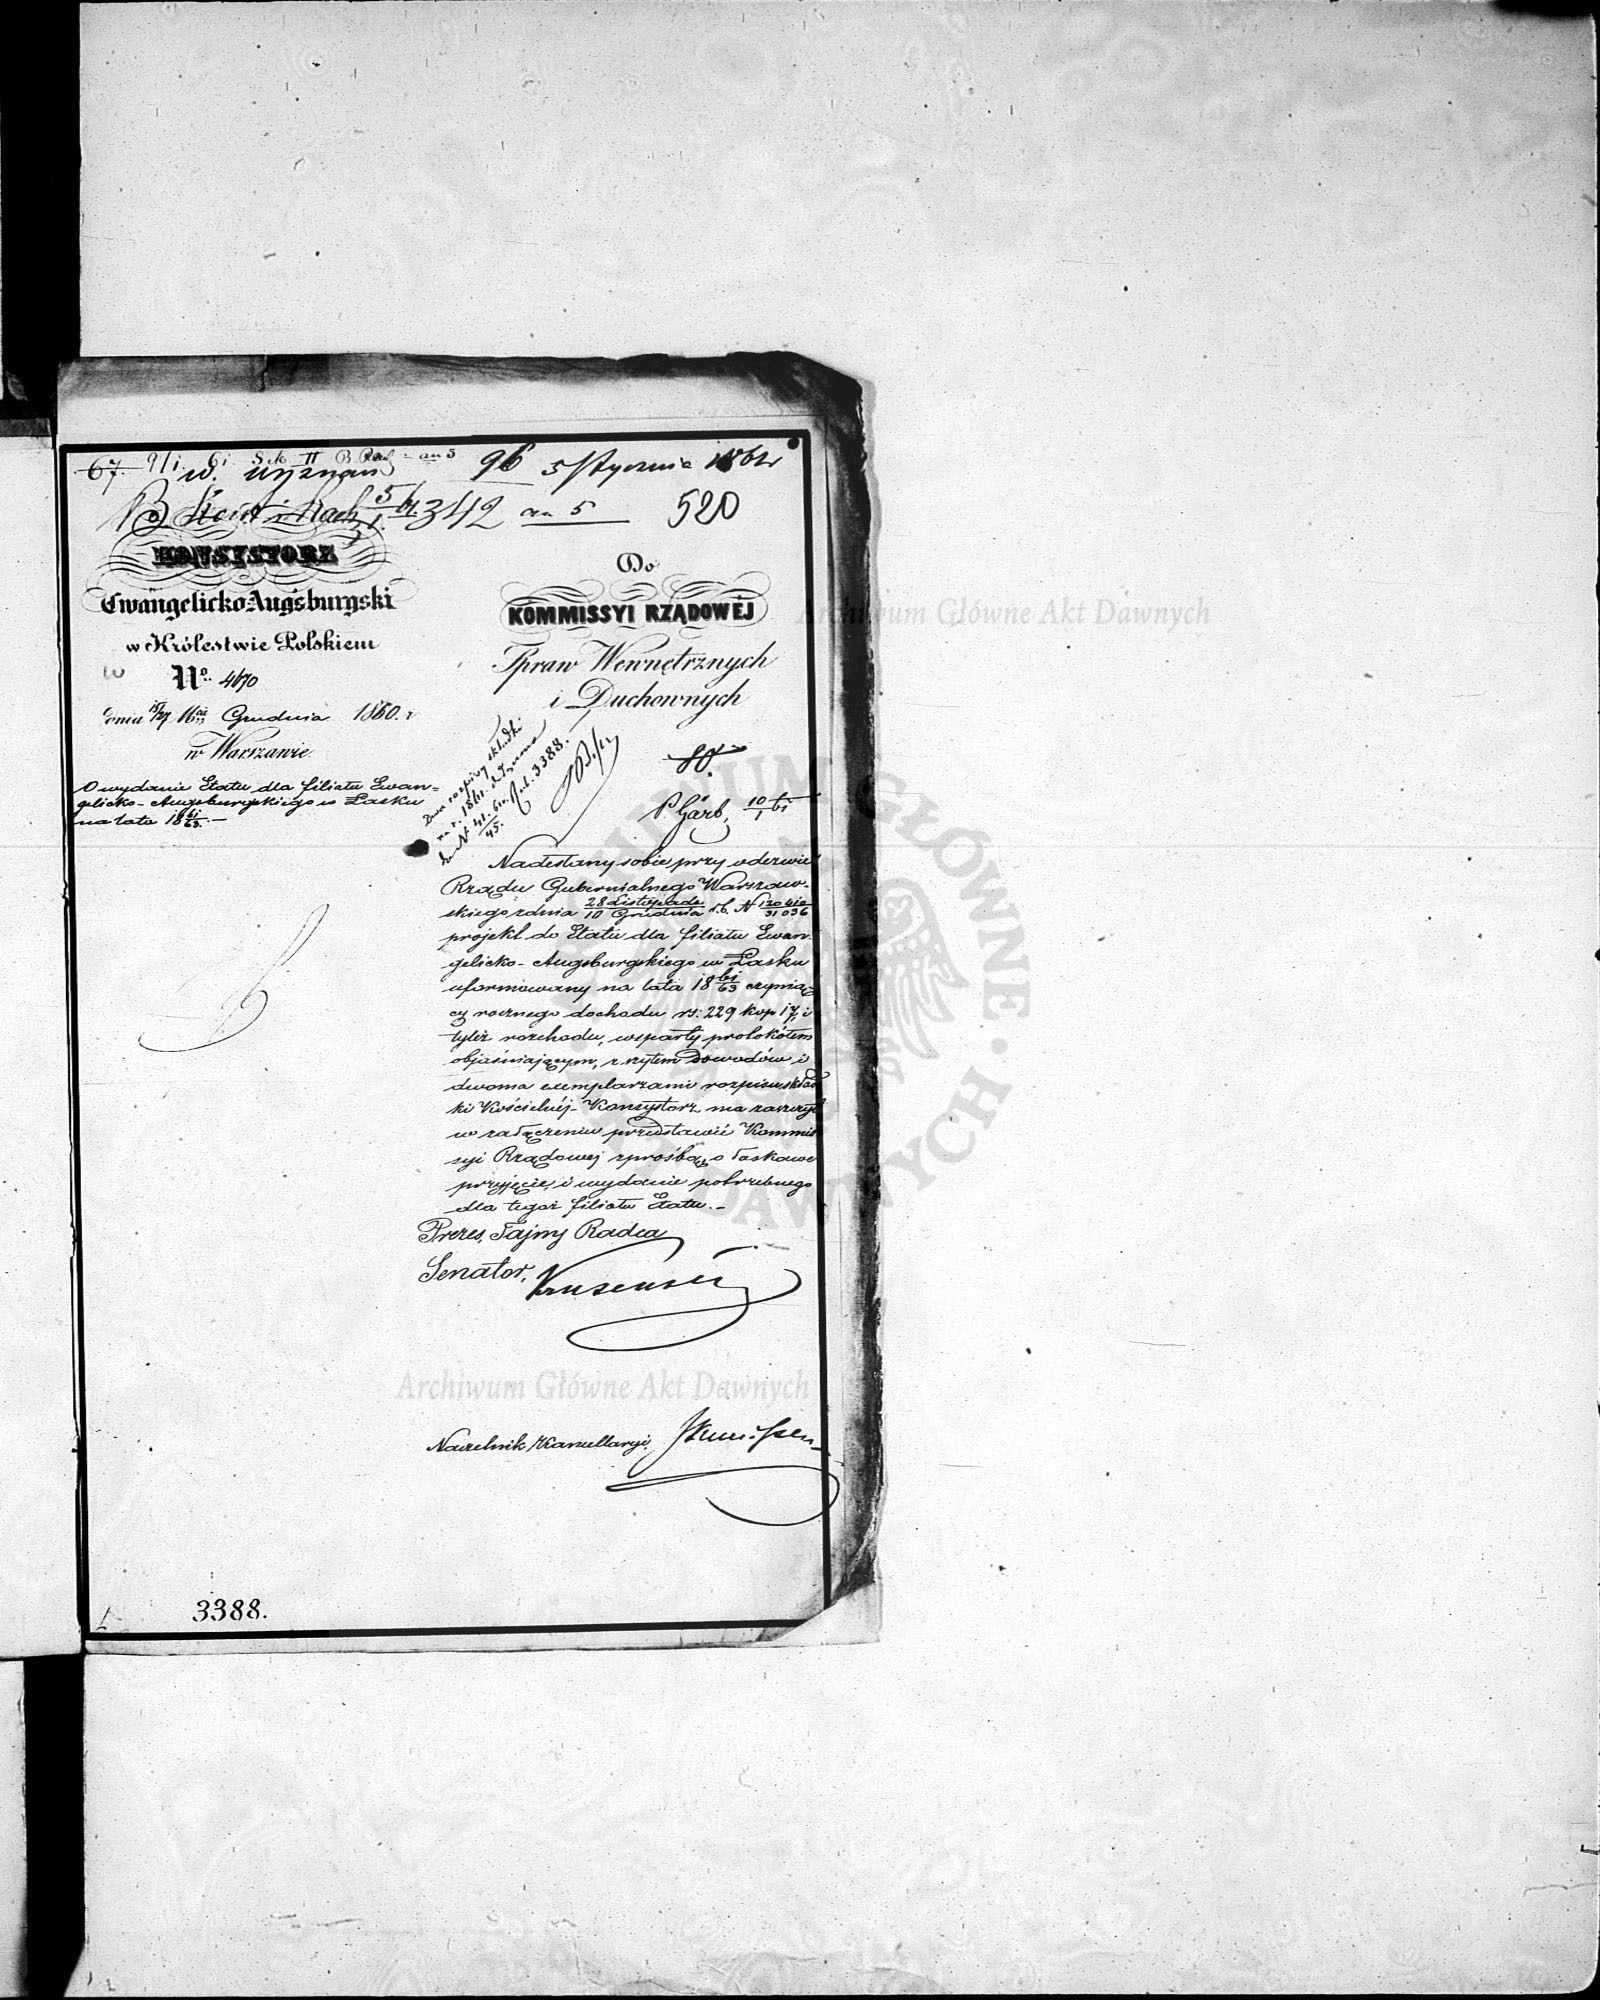 67. 9/1. 61. Sek II B Rach. an 5
w. wyznań 96 5 Stycznia 1861
342 an 5 520
KONSYSTORZ
Ewangelicko-Augsburgski
w Królestwie Polskiem
No. 4670
dnia 15/27 Grudnia 1860. r
w Warszawie
O wydanie Etatu dla filiału Ewan=
gelicko-Augsburgskiego w Łasku
na lata 18 61/63. —
Do
KOMMISSYI RZĄDOWÉJ
Spraw Wewnętrznych
i Duchownych
Dwa rozpisy składki
na r. 1861
3388.
P Gärb, 10/1 61
Nadesłany sobie przy odezwie
Rządu Gubernialnego Warszaw-
skiego z dnia 28 Listopada/10 Grudnia r.b. N
projekt do Etatu dla filiału Ewan
gelicko-Augsburgskiego w Łasku
uformowany na lata 18 61/63 czynią-
cy rocznego dochodu rs: 229 kop 17, i
tyleż rozchodu, wsparty protokółem
objaśniającym, zszytem dowodów, i
dwoma exemplarzami rozpisu skład
ki Kościelnéj - Konsystorz ma zaszczyt
w załączeniu przedstawić Kommis
syi Rządowej z prośbą, o łaskawe
przyjęcie, i wydanie potrzebnego
dla tegoż filiału Etatu. —
Prezes, Tajny Radca
Senator,
Naczelnik Kancellaryi
3388.
Archiwum Główne Akt Dawnych
Archiwum Główne Akt Dawnych
ARCHIWUM GŁÓWNE · AKT DAWNYCH ·